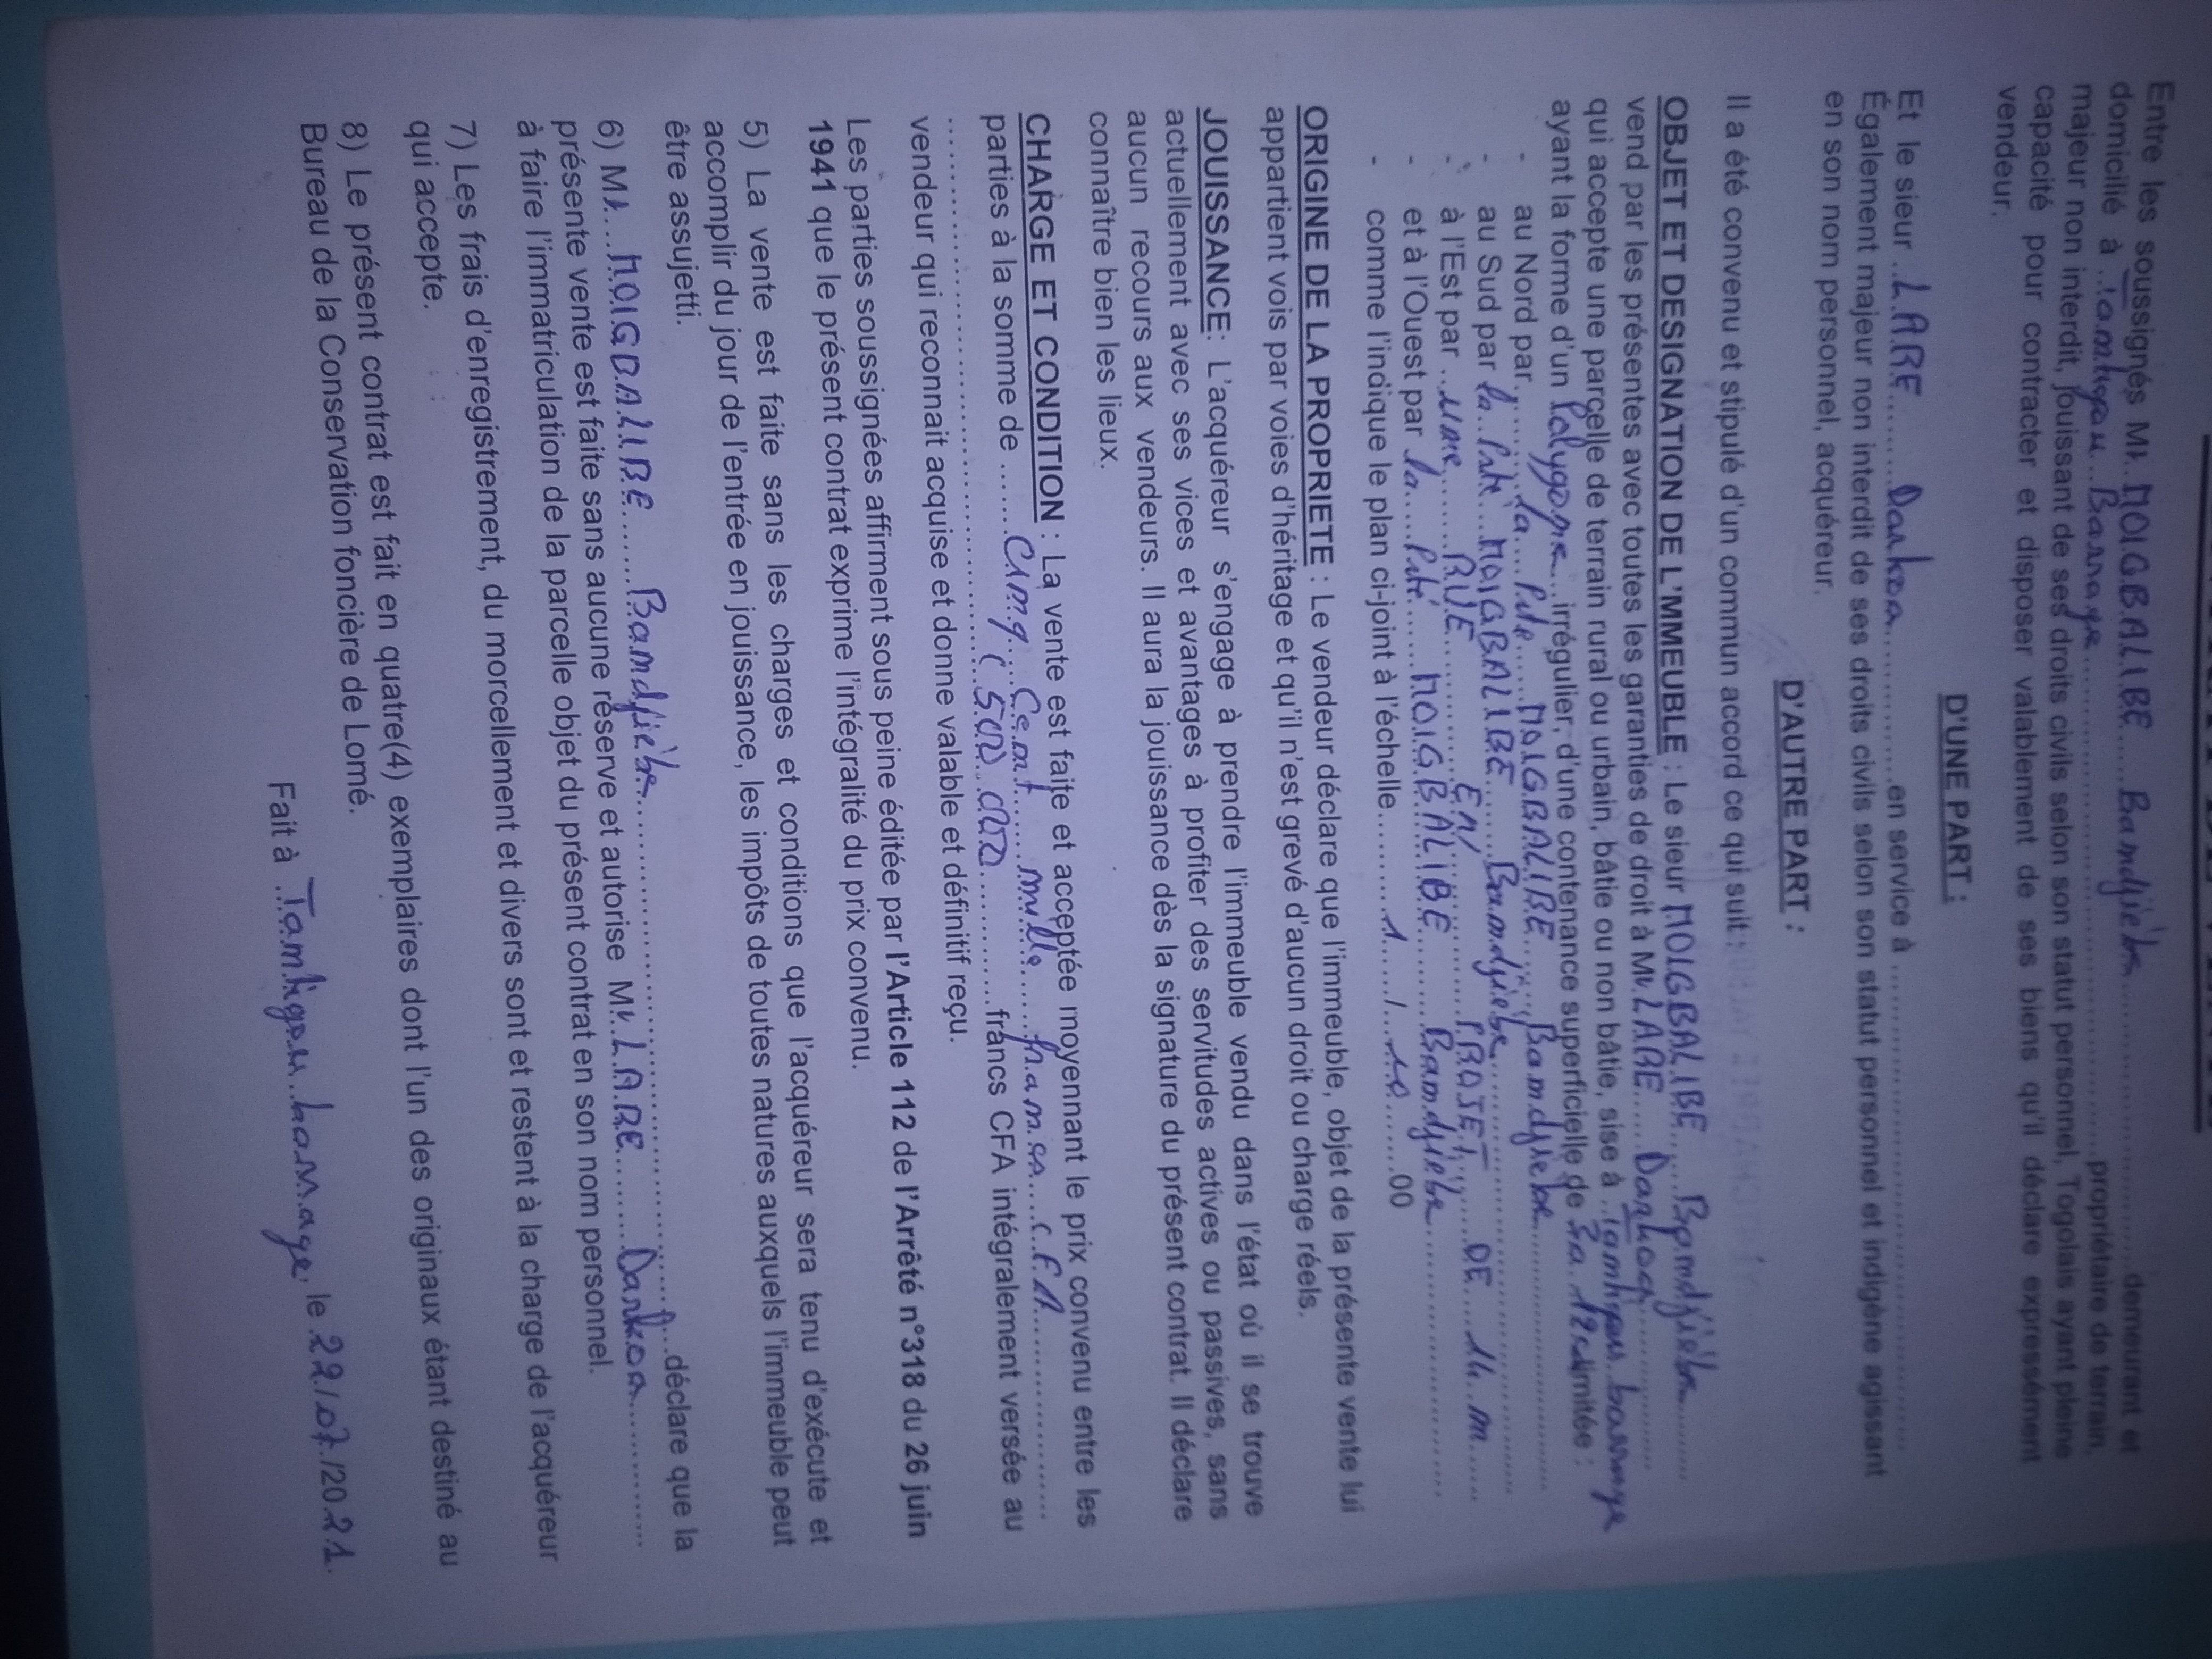 Entre les soussignés Mr. MOIGBALIBE ..... Bandjièbe ........................ demeurant et
domicilié à ..Tantigou...Barrage ............................ propriétaire de terrain,
majeur non interdit, jouissant de ses droits civils selon son statut personnel, Togolais ayant pleine
capacité pour contracter et disposer valablement de ses biens qu'il déclare expressément
vendeur.
D'UNE PART :
Et le sieur ..LARE........Dankoa.....................en service à ...........................................
Également majeur non interdit de ses droits civils selon son statut personnel et indigène agissant
en son nom personnel, acquéreur.
D'AUTRE PART :
Il a été convenu et stipulé d'un commun accord ce qui suit :
OBJET ET DESIGNATION DE L'MMEUBLE : Le sieur MOIGBALIBE.....Bandjièbe..........
vend par les présentes avec toutes les garanties de droit à Mr LARE......Dankoa..............
qui accepte une parcelle de terrain rural ou urbain, bâtie ou non bâtie, sise à ..Tantigou barrage
ayant la forme d'un Polygone...irrégulier, d'une contenance superficielle de 3a 12ca limitée :
- au Nord par..........la....Pté......MOIGBALIBE......Bandjiebe.........................
- au Sud par la..Pté...MOIGBALIBE........Bandjiebe..........................
- à l'Est par ..une.........RUE..............EN...............PROJET.......DE....14..m......
- et à l'Ouest par la....Pté.......MOIGBALIBE.........Bandjiebe.........................
- comme l'indique le plan ci-joint à l'échelle...........1...../...10.......00
ORIGINE DE LA PROPRIETE : Le vendeur déclare que l'immeuble, objet de la présente vente lui
appartient vois par voies d'héritage et qu'il n'est grevé d'aucun droit ou charge réels.
JOUISSANCE : L'acquéreur s'engage à prendre l'immeuble vendu dans l'état où il se trouve
actuellement avec ses vices et avantages à profiter des servitudes actives ou passives, sans
aucun recours aux vendeurs. Il aura la jouissance dès la signature du présent contrat. Il déclare
connaître bien les lieux.
CHARGE ET CONDITION : La vente est faite et acceptée moyennant le prix convenu entre les
parties à la somme de ......Cinq....Cent......mille.......francs....CFA.....................
.................................................( 500 000 .............francs CFA intégralement versée au
vendeur qui reconnait acquise et donne valable et définitif reçu.
Les parties soussignées affirment sous peine éditée par l'Article 112 de l'Arrêté n°318 du 26 juin
1941 que le présent contrat exprime l'intégralité du prix convenu.
5) La vente est faite sans les charges et conditions que l'acquéreur sera tenu d'exécute et
accomplir du jour de l'entrée en jouissance, les impôts de toutes natures auxquels l'immeuble peut
être assujetti.
6) Mr...MOIGBALIBE.......Bandjièbe...................................................déclare que la
présente vente est faite sans aucune réserve et autorise Mr LARE.........Dankoa...............
à faire l'immatriculation de la parcelle objet du présent contrat en son nom personnel.
7) Les frais d'enregistrement, du morcellement et divers sont et restent à la charge de l'acquéreur
qui accepte.
8) Le présent contrat est fait en quatre(4) exemplaires dont l'un des originaux étant destiné au
Bureau de la Conservation foncière de Lomé.
Fait à ..Tantigou barrage, le 22/07/2021.